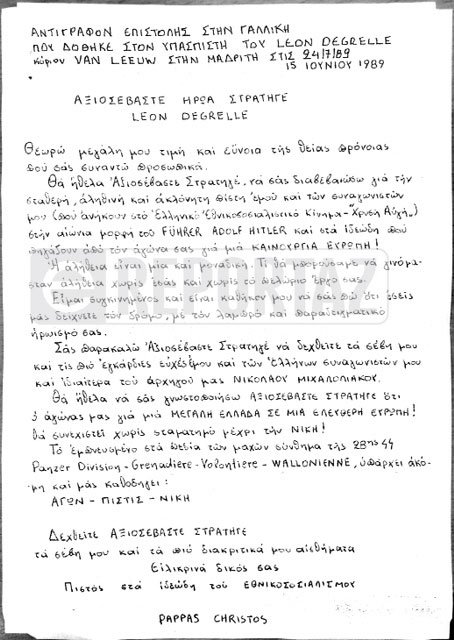 ΑΝΤΙΓΡΑΦΟΝ ΕΠΙΣΤΟΛΗΣ ΣΤΗΝ ΓΑΛΛΙΚΗ
ΠΟΥ ΔΟΘΗΚΕ ΣΤΟΝ ΥΠΑΣΠΙΣΤΗ ΤΟΥ LEON DEGRELLE
κύριον VAN LEEUW ΣΤΗΝ ΜΑΔΡΙΤΗ ΣΤΙΣ 24/7/89
15 ΙΟΥΝΙΟΥ 1989
ΑΞΙΟΣΕΒΑΣΤΕ ΗΡΩΑ ΣΤΡΑΤΗΓΕ
LEON DEGRELLE
Θεωρώ μεγάλη μου τιμή καί εὔνοια τῆς θείας πρόνοιας
πού σᾶς συναντῶ προσωπικά.
Θά ἤθελα Ἀξιοσέβαστε Στρατηγέ, νά σᾶς διαβεβαιώσω γιά τήν
σταθερή, ἀληθινή καί ἀκλόνητη πίστη ἐμοῦ καί τῶν συναγωνιστῶν
μου (πού ἀνήκουν στό Ἑλληνικό Ἐθνικοσοσιαλιστικό Κίνημα-"Χρυσή Αὐγή")
στήν αἰώνια μορφή τοῦ FÜHRER ADOLF HITLER καί στά ἰδεώδη πού
πηγάζουν ἀπό τόν ἀγώνα σας γιά μιά ΚΑΙΝΟΥΡΓΙΑ ΕΥΡΩΠΗ!
Ἡ ἀλήθεια εἶναι μία καί μοναδική. Τί θά μπορούσαμε νά γινόμα-
σταν ἀλήθεια χωρίς ἐσᾶς καί χωρίς τό πελώριο ἔργο σας.
Εἶμαι συγκινημένος καί εἶναι καθῆκον μου νά σᾶς πῶ ὅτι ἐσεῖς
μᾶς δείχνετε τόν δρόμο, μέ τόν λαμπρό καί παραδειγματικό
ἡρωισμό σας.
Σᾶς παρακαλῶ Ἀξιοσέβαστε Στρατηγέ νά δεχθεῖτε τά σέβη μου
καί τίς πιό ἐγκάρδιες εὐχές ἐμοῦ καί τῶν Ἑλλήνων συναγωνιστῶν μου
καί ἰδιαίτερα τοῦ ἀρχηγοῦ μας ΝΙΚΟΛΑΟΥ ΜΙΧΑΛΟΛΙΑΚΟΥ.
Θά ἤθελα νά σᾶς γνωστοποιήσω ΑΞΙΟΣΕΒΑΣΤΕ ΣΤΡΑΤΗΓΕ ὅτι
ὁ ἀγώνας μας γιά μιά ΜΕΓΑΛΗ ΕΛΛΑΔΑ ΣΕ ΜΙΑ ΕΛΕΥΘΕΡΗ ΕΥΡΩΠΗ!
θά συνεχιστεῖ χωρίς σταματημό μέχρι τήν ΝΙΚΗ!
Τό ἐμπνευσμένο στά πεδία τῶν μαχῶν σύνθημα τῆς 28ης 44
Panzer Division-Grenadiere-Volontiere-WALLONIENNE, ὑπάρχει ἀκό-
μη καί μᾶς καθοδηγεῖ:
ΑΓΩΝ-ΠΙΣΤΙΣ-ΝΙΚΗ
Δεχθεῖτε ΑΞΙΟΣΕΒΑΣΤΕ ΣΤΡΑΤΗΓΕ
τά σέβη μου καί τά πιό διακριτικά μου αἰσθήματα
Εἰλικρινά δικός σας
Πιστός στά ἰδεώδη τοῦ ΕΘΝΙΚΟΣΟΣΙΑΛΙΣΜΟΥ
PAPPAS CHRISTOS